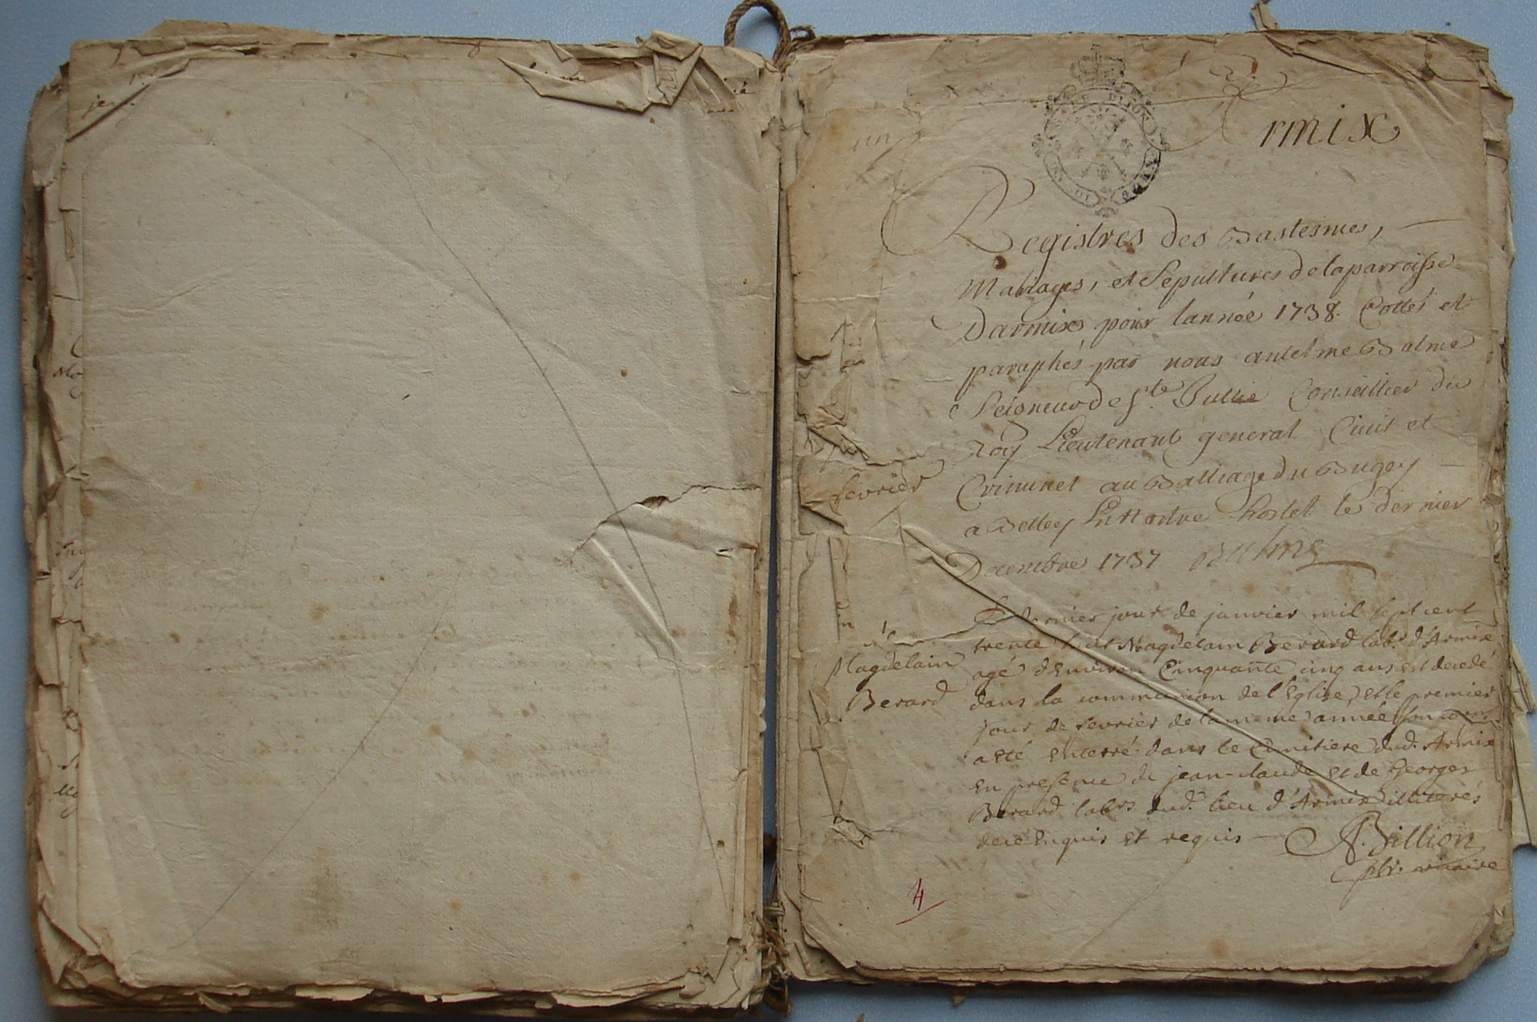 Armix
Registres des Bastesmes,
Mariages, et Sepultures de la parroisse
Darmix pour lannée 1738. Cottés et
paraphés par nous antelme Balme
Seigneur de Ste Jullie Conseillier du
Roy Lieutenant general Civil et
Criminel au Balliage du Bugey
a Belley En Nostre hostel le dernier
Decembre 1737 Balme
fevrier
Le dernier jour de janvier mil sept cent
trente huit Magdelain Berard labr. d'Armix
agé d'Environ Cinquante cinq ans est decedé
dans la communion de l'Eglise, et le premier
jour de fevrier de la meme année
a eté enterré dans le Cimitiere dud. Armix
En presence de jean-claude et de Georges
Berard labrs dud. lieu d'Armix illiterés
de ce Enquis et requis A. Billion
ptr. vicaire
Magdelain
Berard
4